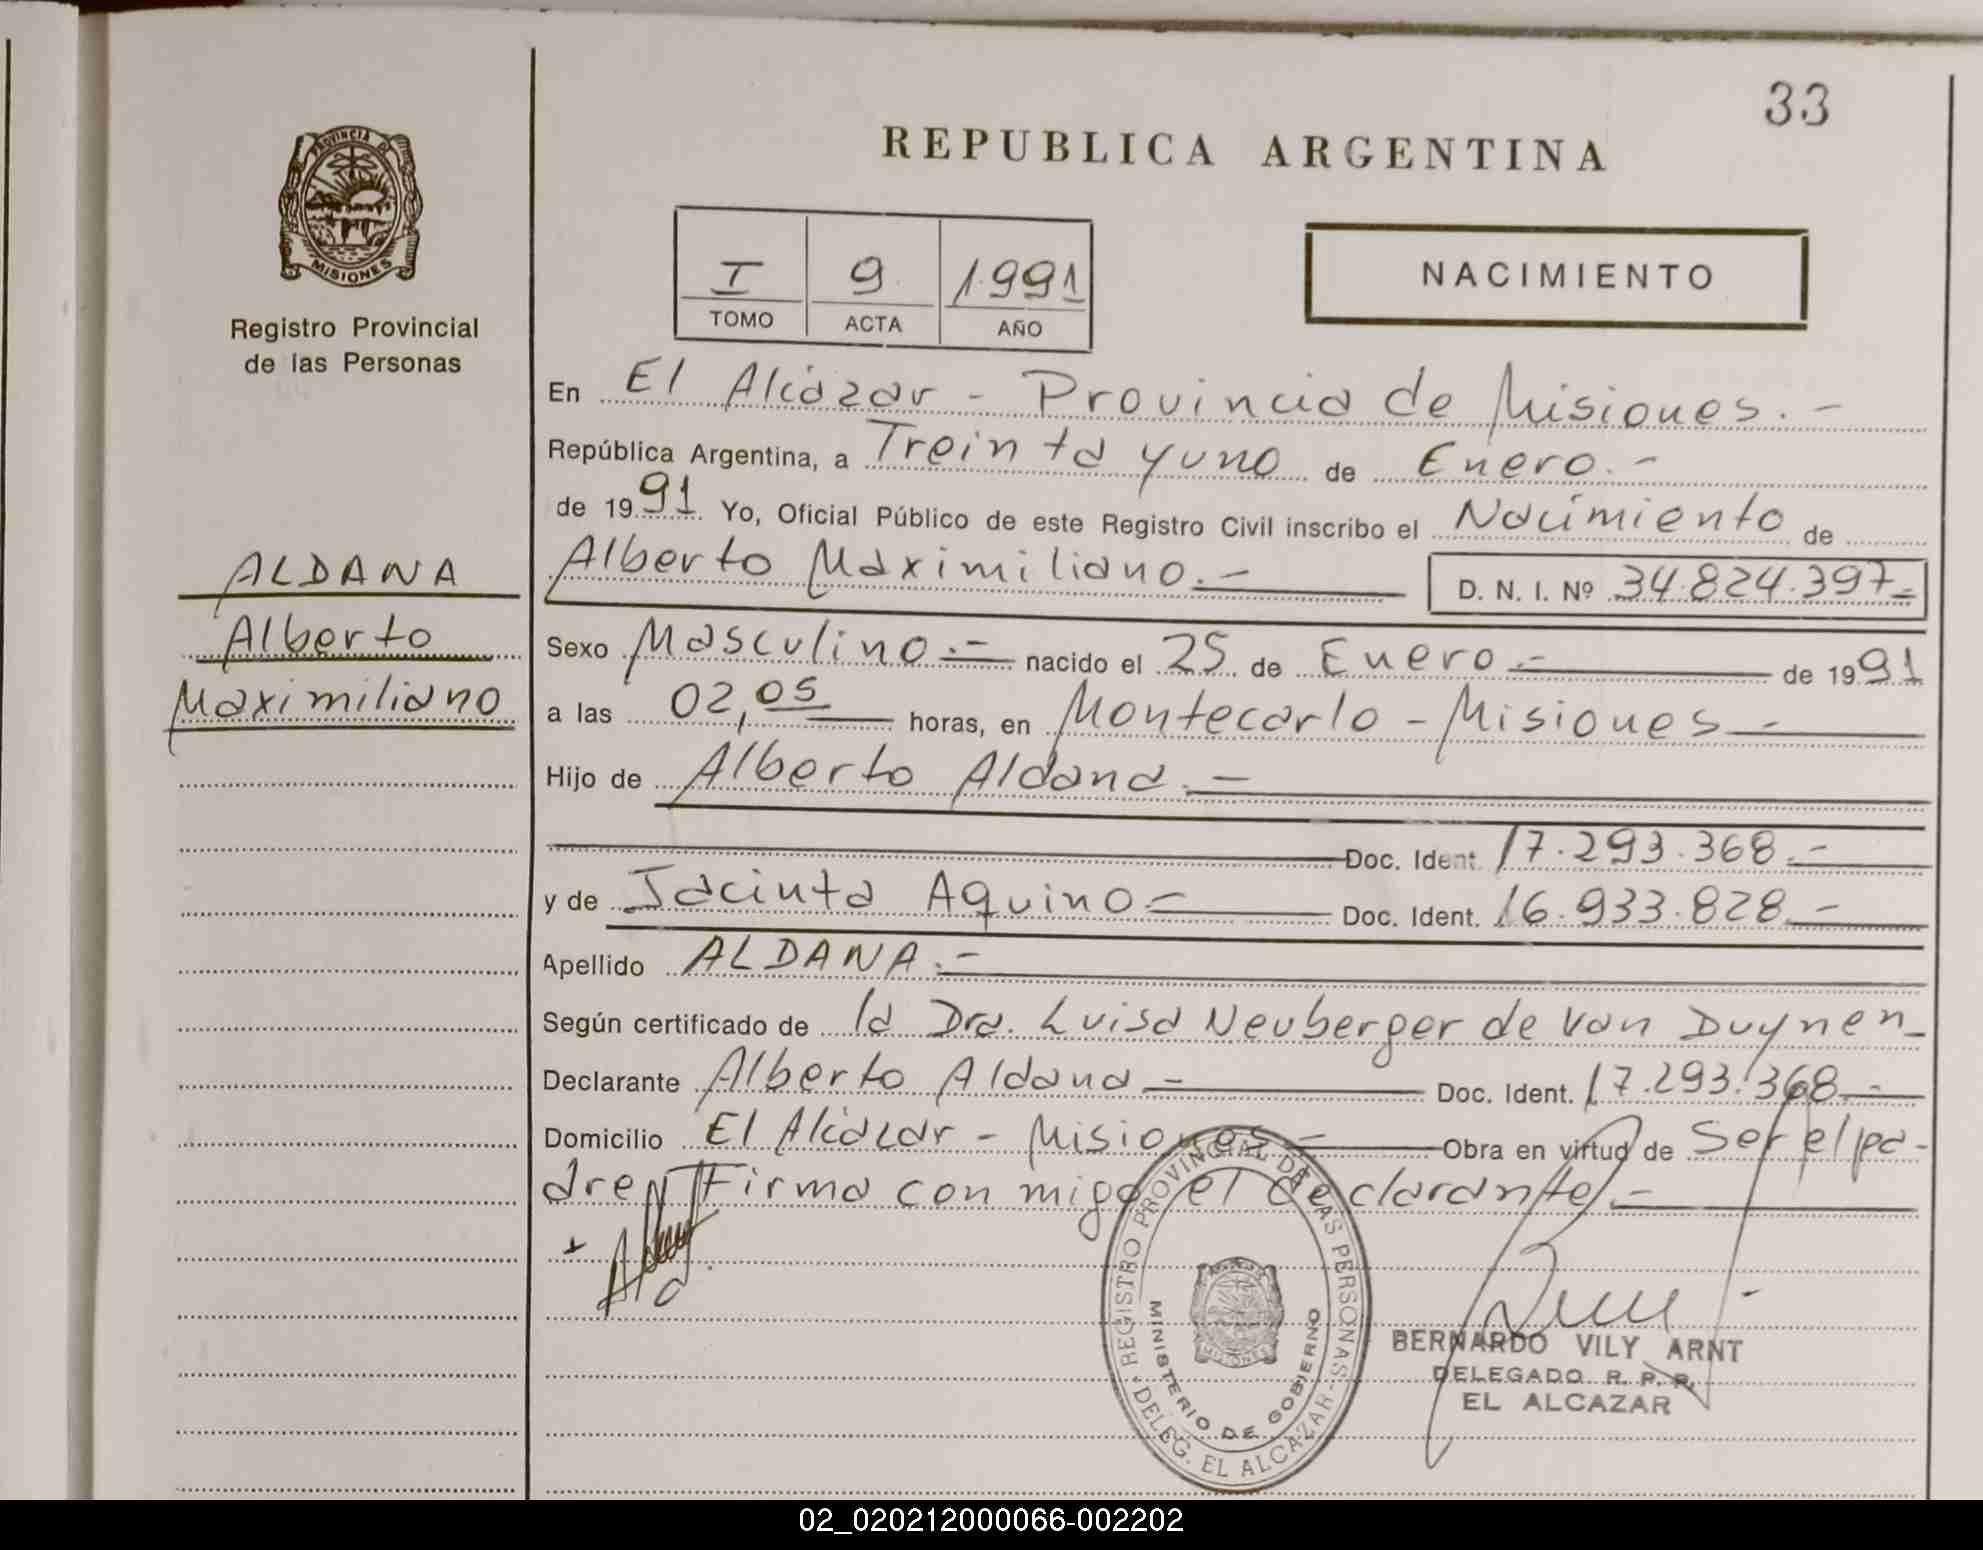 33
REPUBLICA ARGENTINA
PROVINCIA DE
MISIONES
Registro Provincial
de las Personas
I 9 1.991
TOMO ACTA AÑO
NACIMIENTO
En El Alcázar - Provincia de Misiones.-
República Argentina, a Treinta y uno de Enero.-
de 1991 Yo, Oficial Público de este Registro Civil inscribo el Nacimiento de
Alberto Maximiliano.- D. N. I. Nº 34.824.397-
ALDANA
Alberto
Maximiliano
Sexo Masculino.- nacido el 25 de Enero.- de 1991
a las 02,05 horas, en Montecarlo - Misiones -
Hijo de Alberto Aldana.-
Doc. Ident. 17.293.368.-
y de Jacinta Aquino.- Doc. Ident. 16.933.828.-
Apellido ALDANA.-
Según certificado de la Dra. Luisa Neuberger de Van Duynen-
Declarante Alberto Aldana.- Doc. Ident. 17.293.368.-
Domicilio El Alcázar - Misiones.- Obra en virtud de Ser el pa-
dre Firma con migo el declarante.-
REGISTRO PROVINCIAL DE LAS PERSONAS - DELEG. EL ALCAZAR -
MINISTERIO DE GOBIERNO
MISIONES
BERNARDO VILY ARNT
DELEGADO R. P. P.
EL ALCAZAR
02_020212000066-002202